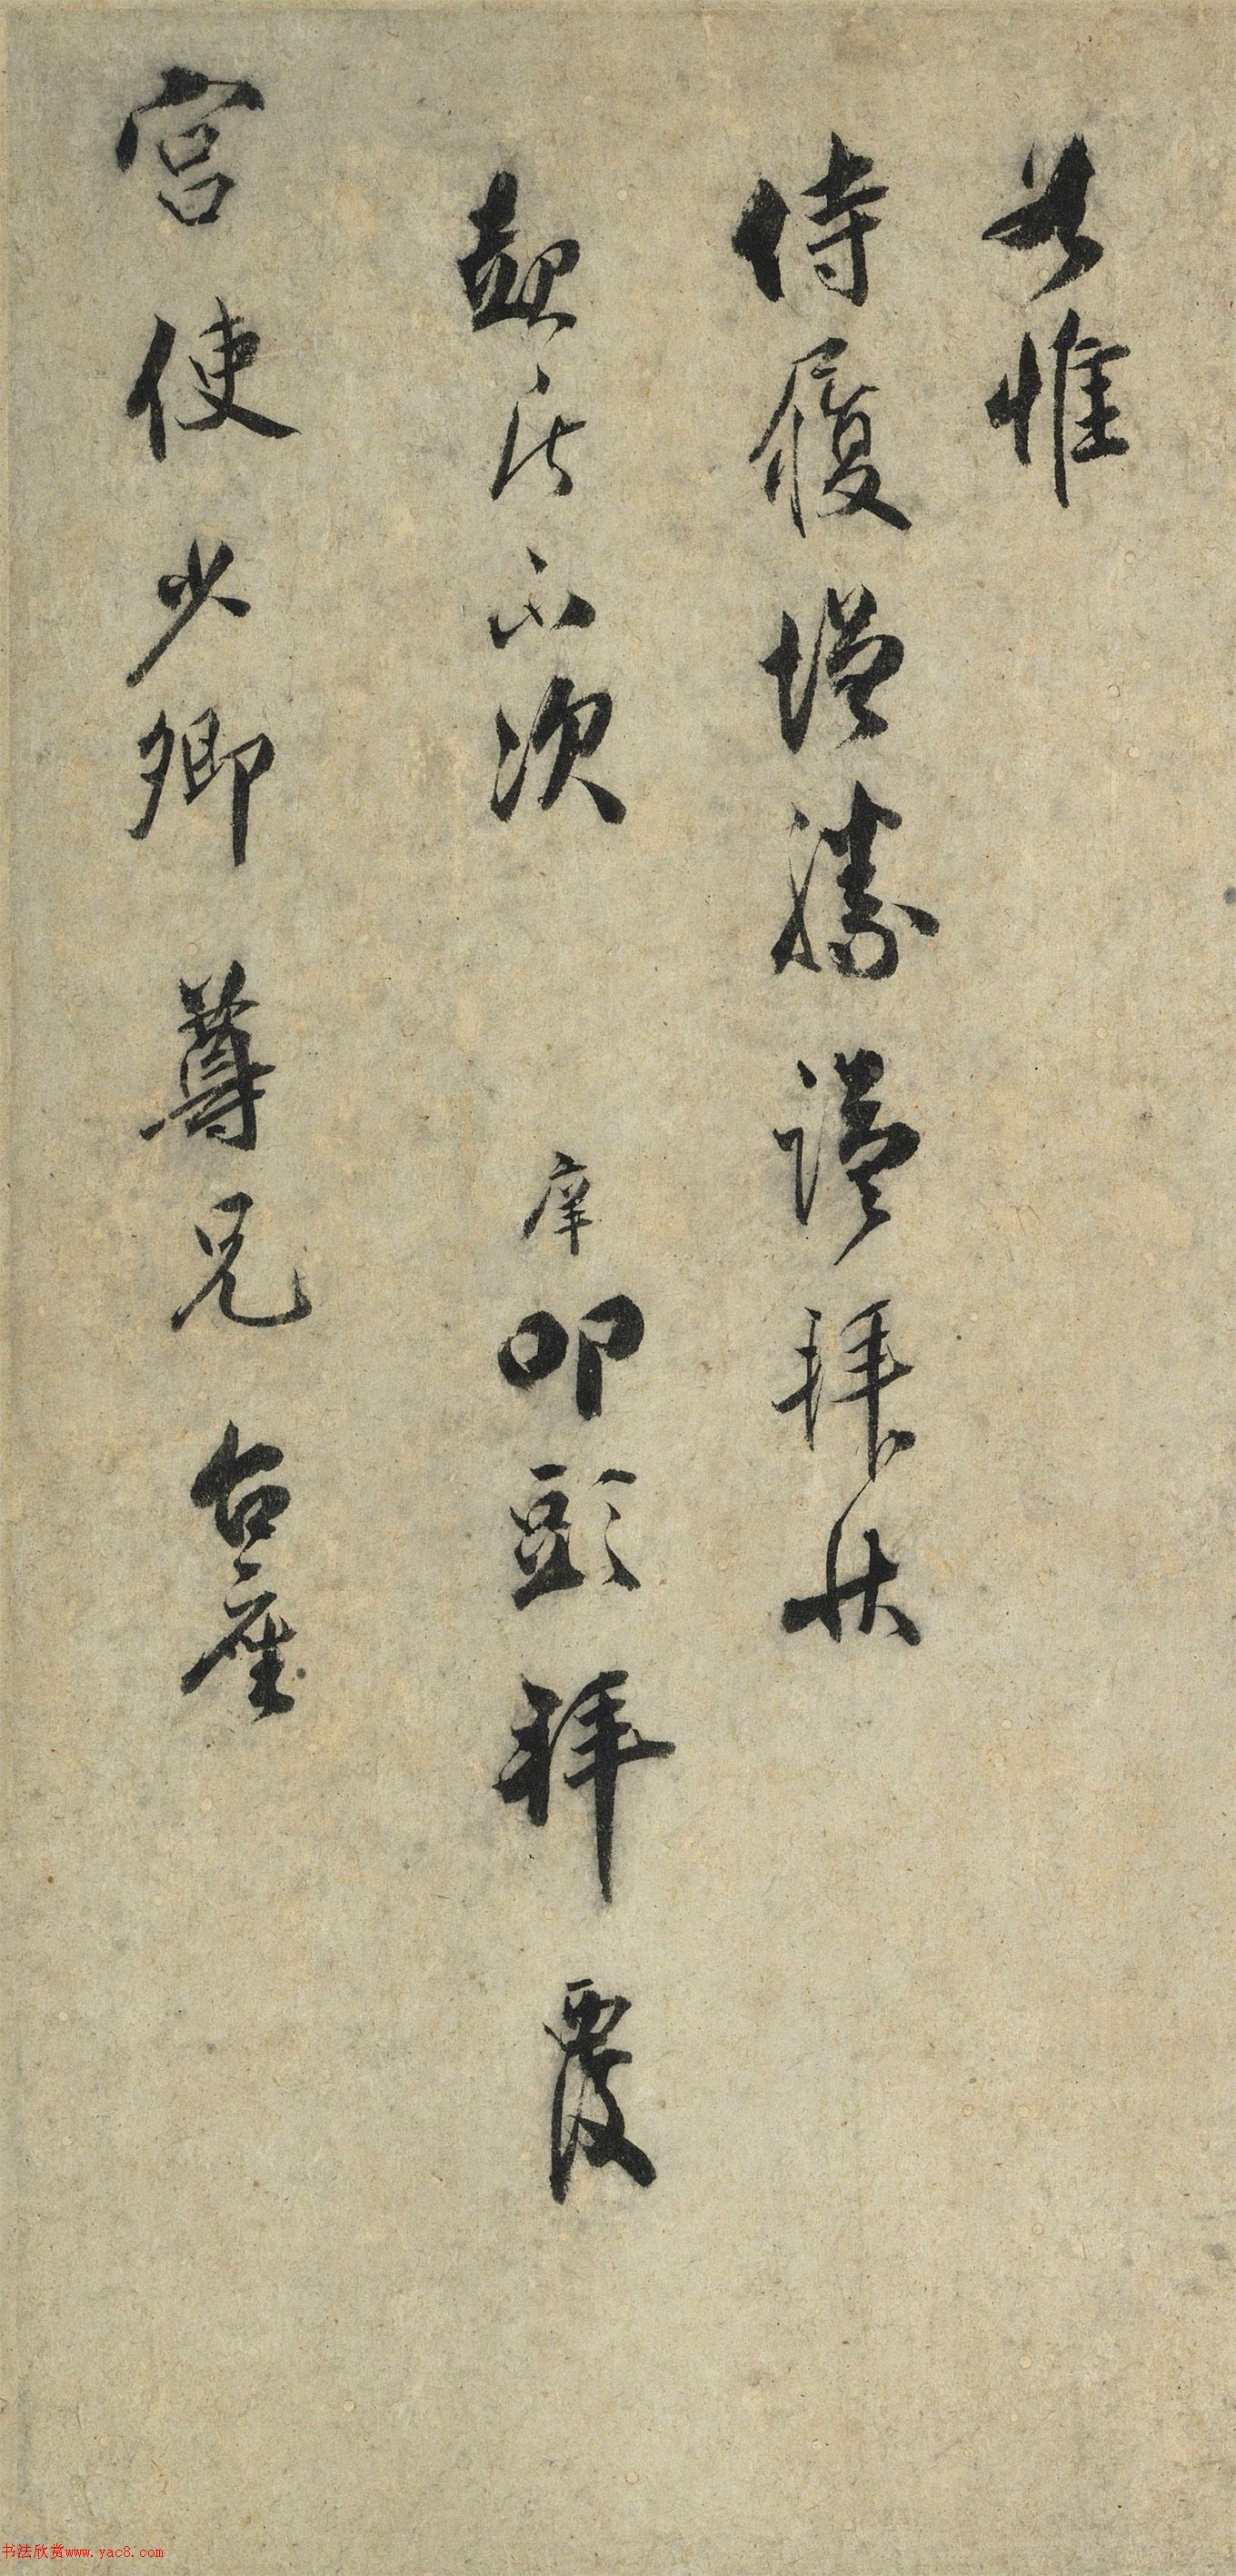 恭惟
侍履增勝謹拜狀
起居不次 庠叩頭拜覆
宮使少卿尊兄台座
书法欣赏www.yac8.com